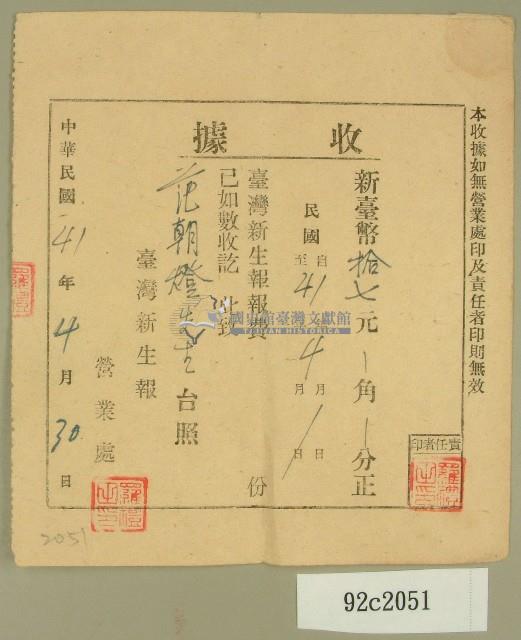 本收據如無營業處印及責任者印則無效
收據
新臺幣拾七元—角—分正
民國自41年4月1日
至 月 日
臺灣新生報報費 份
已如數收訖 此致
范朝燈先生台照
臺灣新生報
營業處
中華民國41年4月30日
責任者印
國史館臺灣文獻館
TAIWAN HISTORICA
2051
92c2051